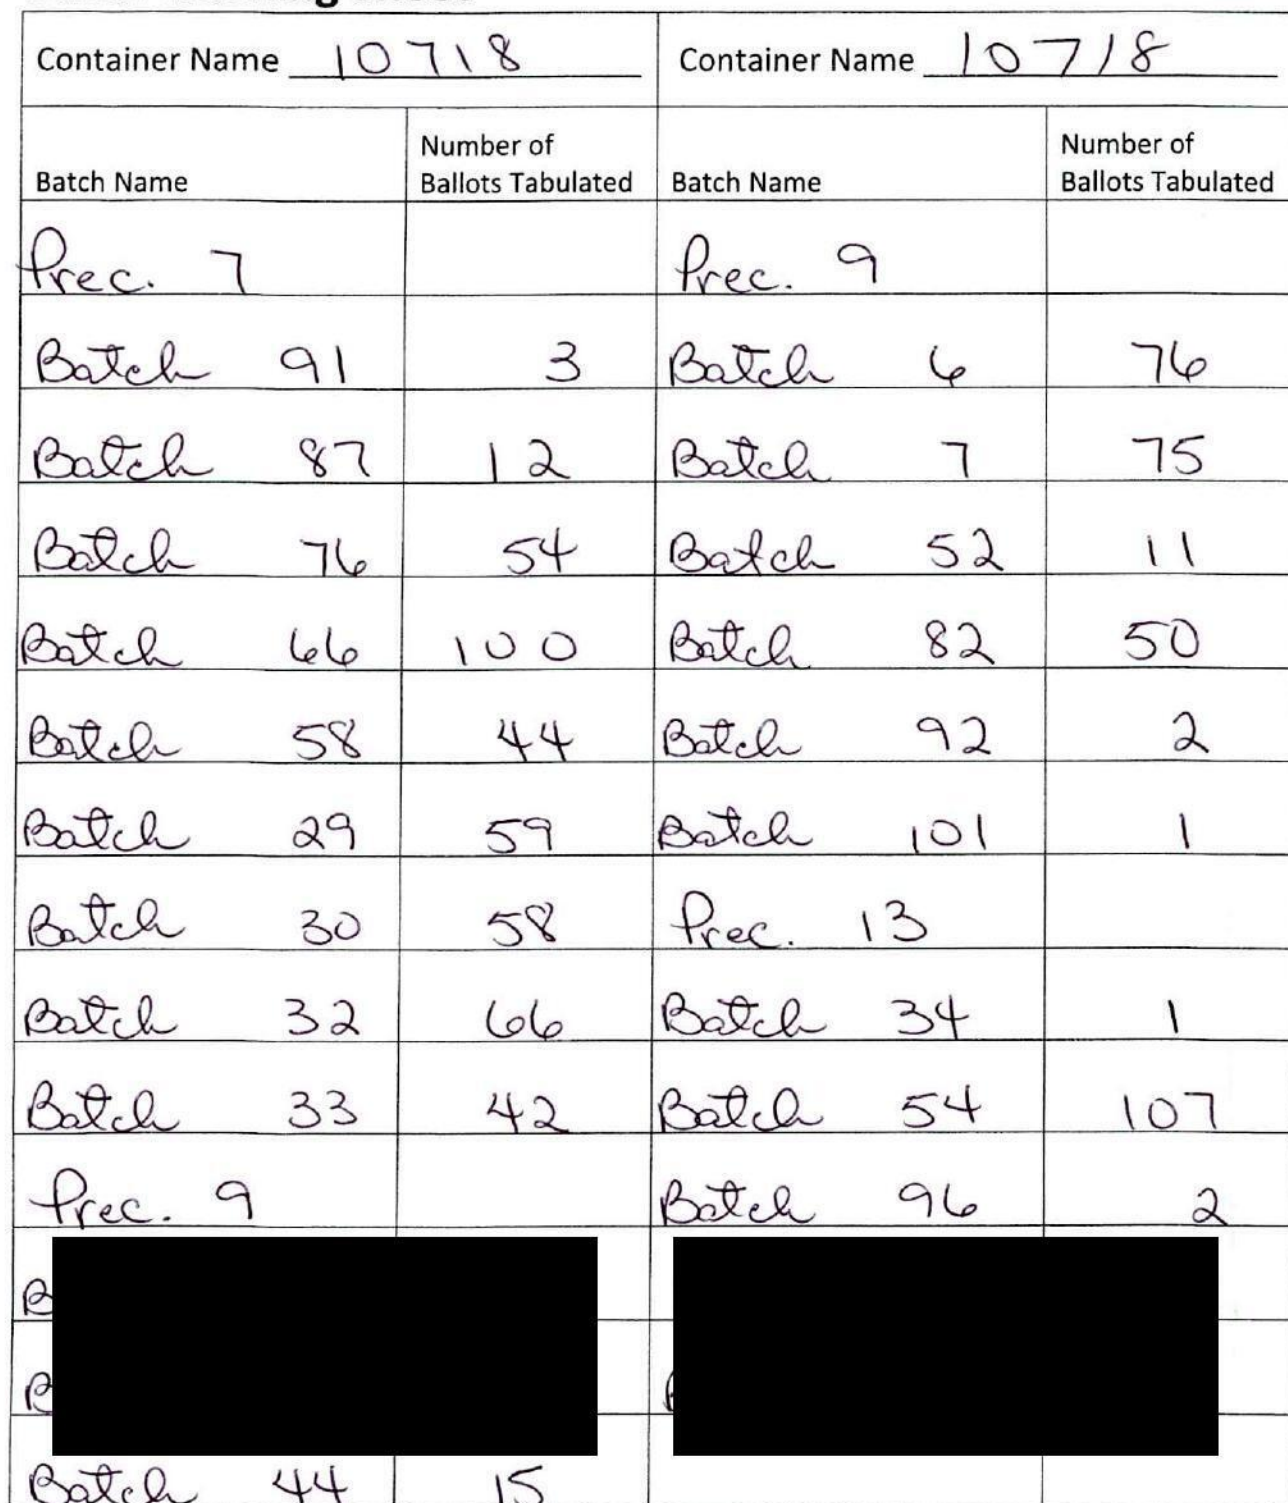 Container Name 10718 Container Name 10718
Batch Name Number of Ballots Tabulated Batch Name Number of Ballots Tabulated
Prec. 7 Prec. 9
Batch 91 3 Batch 6 76
Batch 87 12 Batch 7 75
Batch 76 54 Batch 52 11
Batch 66 100 Batch 82 50
Batch 58 44 Batch 92 2
Batch 29 59 Batch 101 1
Batch 30 58 Prec. 13
Batch 32 66 Batch 34 1
Batch 33 42 Batch 54 107
Prec. 9 Batch 96 2
Batch 44 15